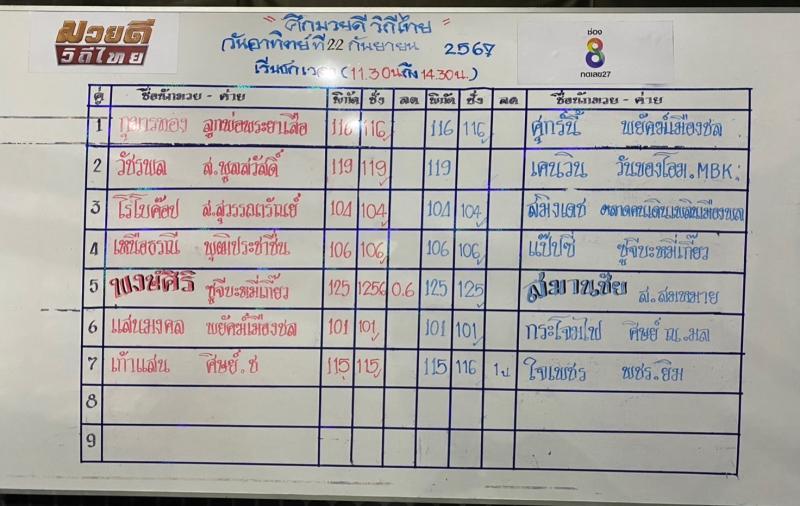 มวยดี
วิถีไทย
" ศึกมวยดี วิถีไทย "
วันอาทิตย์ที่ 22 กันยายน 2567
เริ่มชกเวลา (11.30น ถึง 14.30น.)
ช่อง
8
กดเลข27
คู่ ชื่อนักมวย - ค่าย พิกัด ชั่ง ลด พิกัด ชั่ง ลด ชื่อนักมวย - ค่าย
1 กุมารทอง ลูกพ่อพระยาเสือ 116 116 116 116 ศุกร์นี้ พยัคฆ์เมืองชล
2 วัชรพล ส.พูลสวัสดิ์ 119 119 119 เคนวิน วันของโอม.MBK.
3 โรโบค๊อป ส.สุวรรณภัณฑ์ 104 104 104 104 สมิงเดช ตลาดคนเดินเพลินเมืองพล
4 เหนือธรณี พุฒิประชาชื่น 106 106 106 106 แป๊ปซี่ ซูจีบะหมี่เกี๊ยว
5 พงษ์ศิริ ซูจีบะหมี่เกี๊ยว 125 1256 0.6 125 125 สมานชัย ส.สมหมาย
6 แสนมงคล พยัคฆ์เมืองชล 101 101 101 101 กระโจมไฟ ศิษย์ ณ.มล
7 เก้าแสน ศิษย์.ช 115 115 115 116 1ป. ใจเพชร พชร.ยิม
8
9